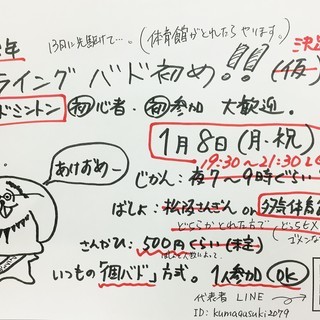 年 13日に先駆けて…。(体育館がとれたらやります。) 決定
ライングバド初め!!(仮)
ドミントン 初心者・初参加 大歓迎。
1月8日(月・祝)
19:30～21:30
じかん：夜7～9時ぐらい
あけおめー
ばしょ：松阪さんぎん or 多気体育
どちらかとれた方で
ゴメンな
さんかひ：500円ぐらい(未定)
いつもの「個バド」方式。1人参加OK
代表者 LINE
ID: kumagasuki2079